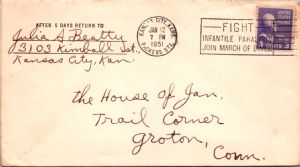 AFTER 5 DAYS RETURN TO
Julia A Beatty
3103 Kimball St.
Kansas City, Kan.
KANSAS CITY, KANS.
JAN 12
7 PM
1951
FIGHT
INFANTILE PARALYSIS
JOIN MARCH OF DIMES
3
The House of Jan,
Trail Corner
Groton,
Conn.